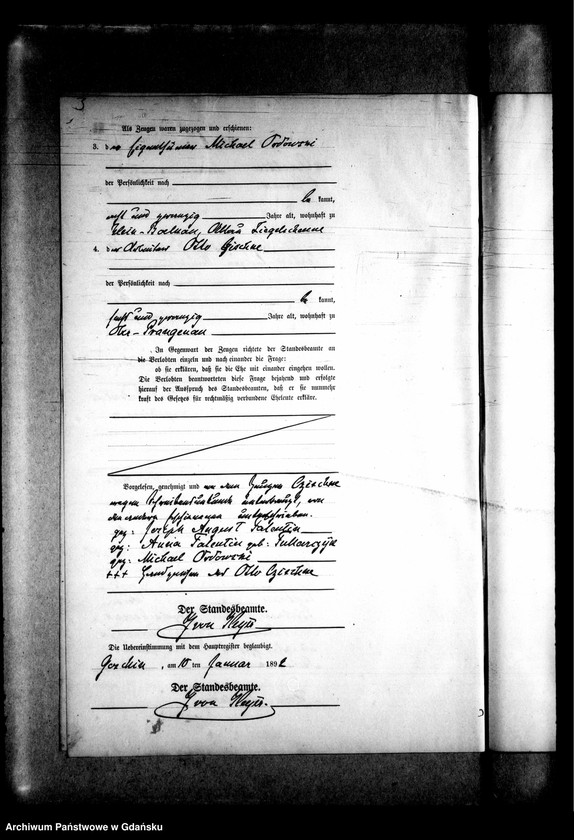 Als Zeugen waren zugezogen und erschienen:
3. der Eigenthümer Michael
der Persönlichkeit nach
be kannt,
acht und zwanzig Jahre alt, wohnhaft zu
Klein-
4. der Arbeiter Otto
der Persönlichkeit nach
be kannt,
fünf und zwanzig Jahre alt, wohnhaft zu
Ober-Prangenau
In Gegenwart der Zeugen richtete der Standesbeamte an
die Verlobten einzeln und nach einander die Frage:
ob sie erklären, daß sie die Ehe mit einander eingehen wollen.
Die Verlobten beantworteten diese Frage bejahend und erfolgte
hierauf der Ausspruch des Standesbeamten, daß er sie nunmehr
kraft des Gesetzes für rechtmäßig verbundene Eheleute erkläre.
Vorgelesen, genehmigt und von dem Zeugen
wegen Schreibensunkunde unterkreuzt, von
den anderen Erschienenen unterschrieben.
gez: Joseph August Talentin
gez: Anna Talentin geb:
gez: Michael
+++ Handzeichen des Otto
Der Standesbeamte.
Die Uebereinstimmung mit dem Hauptregister beglaubigt.
am 10 ten Januar 1892
Der Standesbeamte.
Archiwum Państwowe w Gdańsku